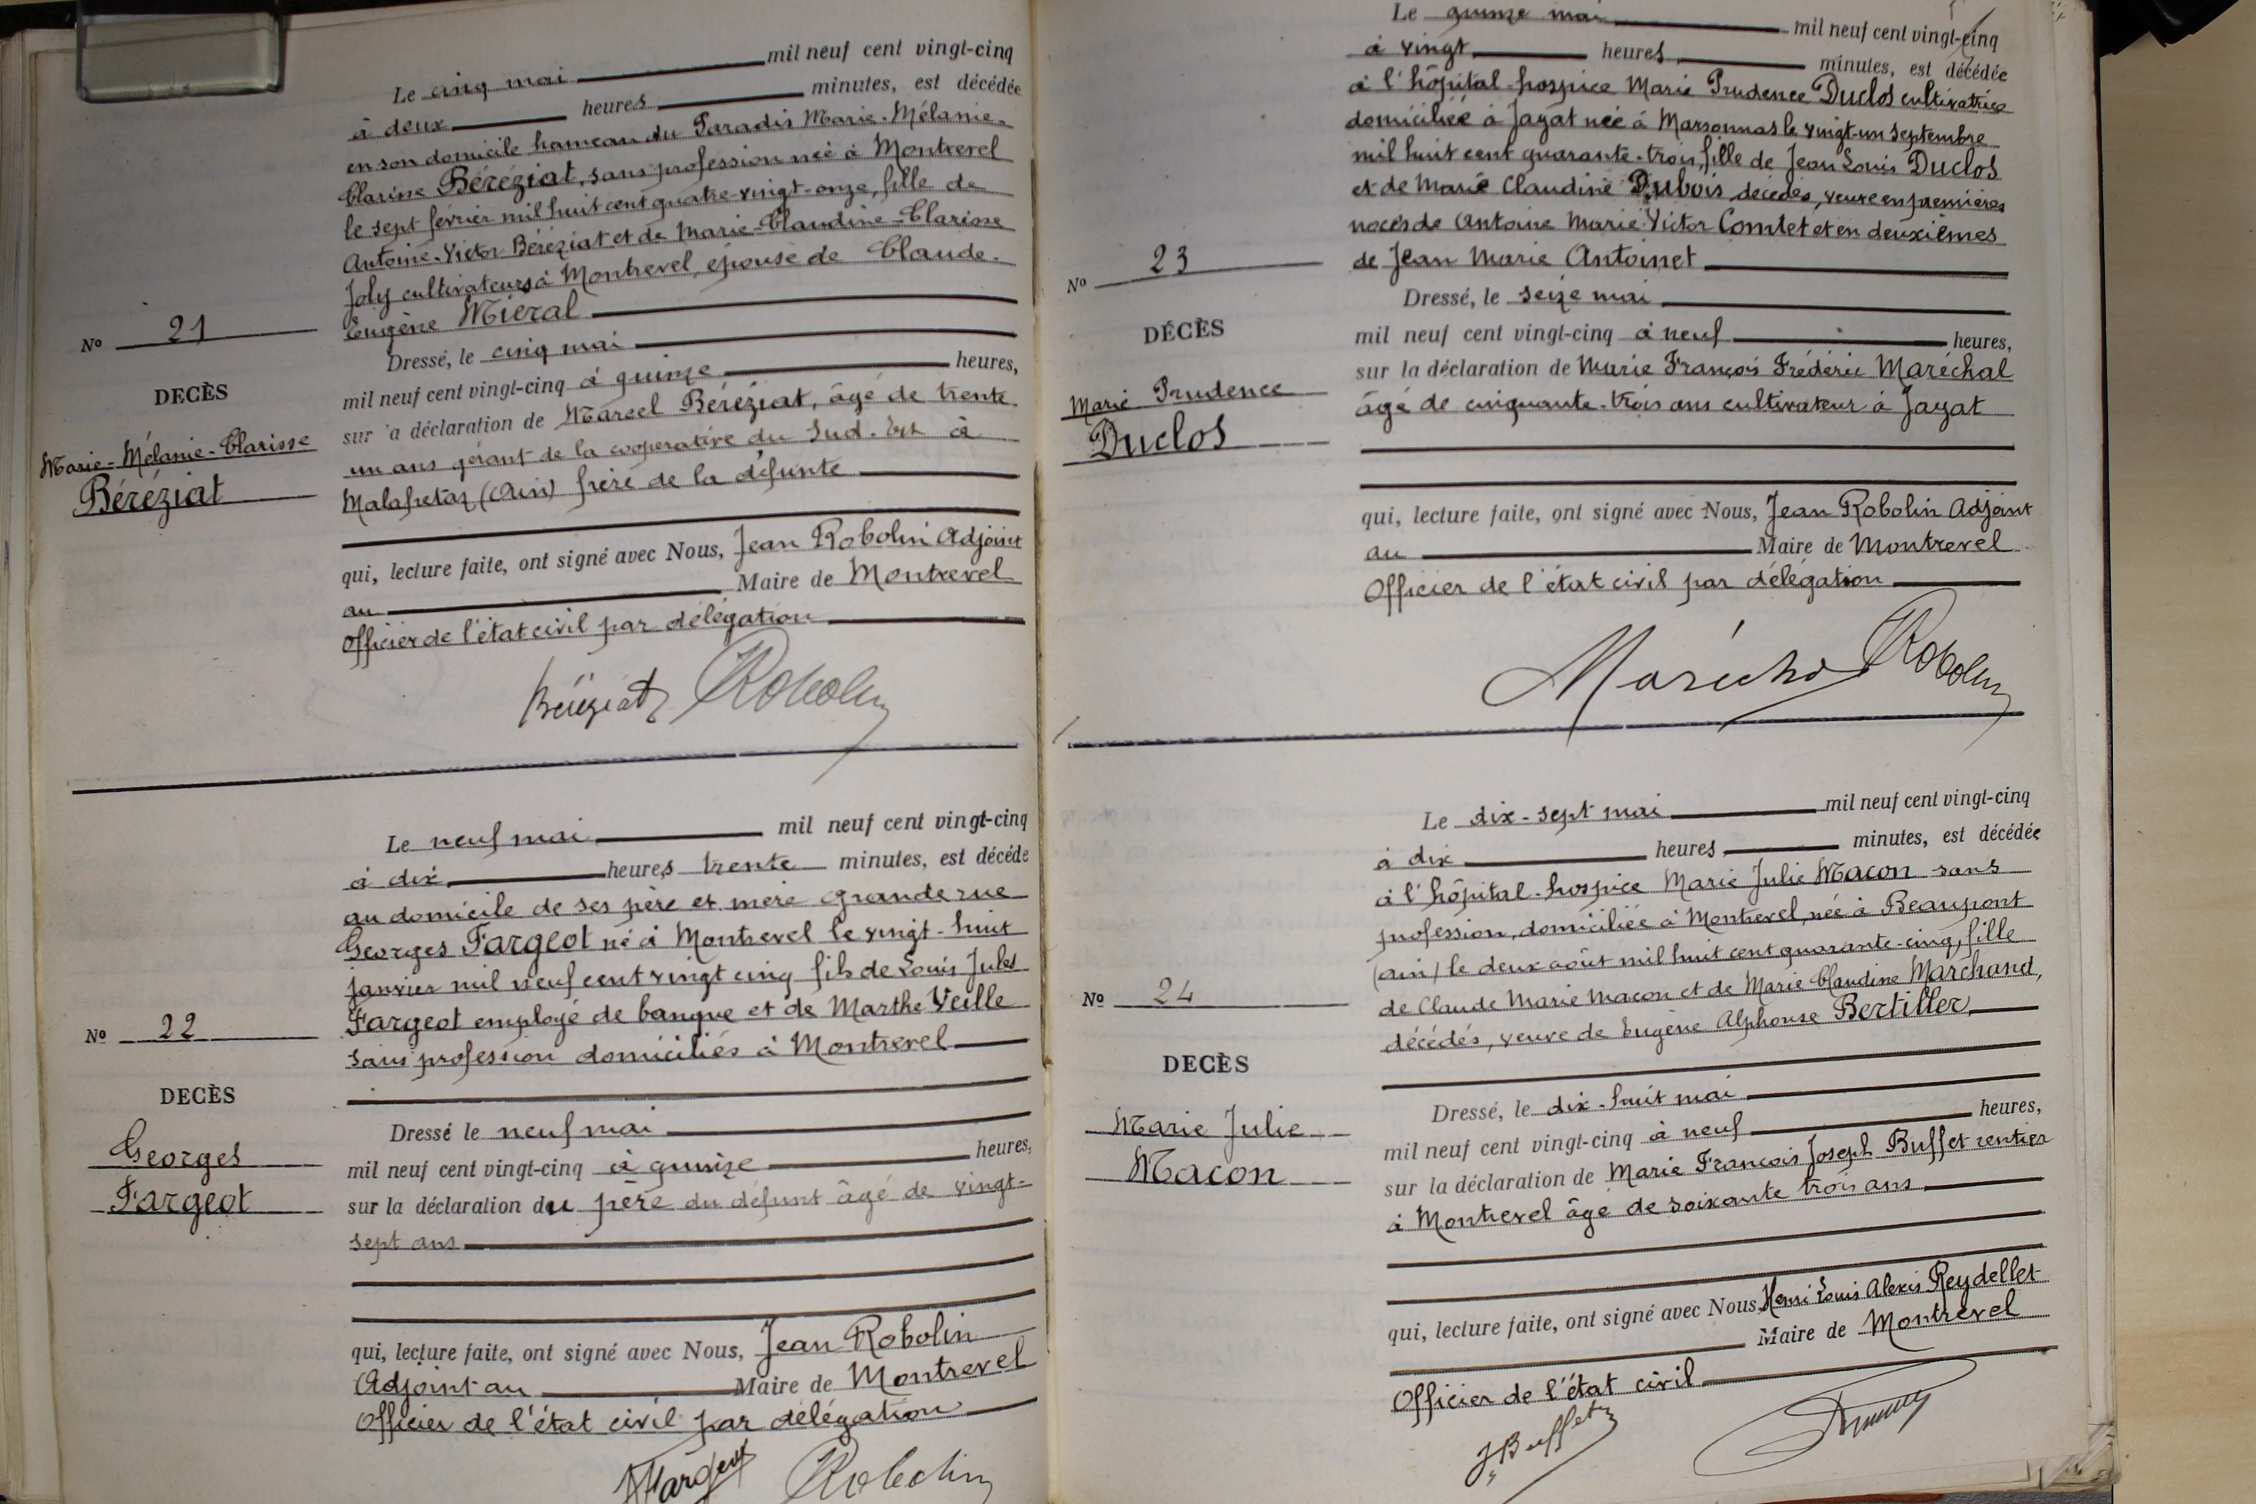 Le cinq mai mil neuf cent vingt-cinq
à deux heures minutes, est décédée
en son domicile hameau du Paradis Marie-Mélanie-
Clarisse Béréziat, sans profession née à Montrevel
le sept février mil huit cent quatre-vingt-onze, fille de
Antoine-Victor Béréziat et de Marie-Claudine-Clarisse
Joly cultivateurs à Montrevel, épouse de Claude-
Eugène Miéral
Nº 21
Dressé, le cinq mai
DECÈS
mil neuf cent vingt-cinq à quinze heures,
Marie-Mélanie-Clarisse
Béréziat
sur a déclaration de Marcel Béréziat, âgé de trente
un ans gérant de la coopérative du Sud-Est à
Malafretaz (Ain) frère de la défunte
qui, lecture faite, ont signé avec Nous, Jean Robolin Adjoint
au Maire de Montrevel
Officier de l'état civil par délégation
Béréziat Robolin
Le neuf mai mil neuf cent vingt-cinq
à dix heures trente minutes, est décédé
au domicile de ses père et mère Grande rue
Georges Fargeot né à Montrevel le vingt-huit
janvier mil neuf cent vingt cinq fils de Louis Jules
Fargeot employé de banque et de Marthe Veille
sans profession domiciliés à Montrevel
Nº 22
DECÈS
Georges
Fargeot
Dressé le neuf mai
mil neuf cent vingt-cinq à quinze heures,
sur la déclaration du père du défunt âgé de vingt-
sept ans
qui, lecture faite, ont signé avec Nous, Jean Robolin
Adjoint au Maire de Montrevel
Officier de l'état civil par délégation
Fargeot Robolin
Le quinze mai mil neuf cent vingt-cinq
à vingt heures minutes, est décédée
à l'hôpital-hospice Marie Prudence Duclos cultivatrice
domiciliée à Jayat née à Marsonnas le vingt-un septembre
mil huit cent quarante-trois, fille de Jean Louis Duclos
et de Marie Claudine Dubois décédés, veuve en premières
noces de Antoine Marie Victor Comtet et en deuxièmes
de Jean Marie Antoinet
Nº 23
DÉCÈS
Marie Prudence
Duclos
Dressé, le seize mai
mil neuf cent vingt-cinq à neuf heures,
sur la déclaration de Marie François Frédéric Maréchal
âgé de cinquante-trois ans cultivateur à Jayat
qui, lecture faite, ont signé avec Nous, Jean Robolin Adjoint
au Maire de Montrevel
Officier de l'état civil par délégation
Maréchal Robolin
Le dix-sept mai mil neuf cent vingt-cinq
à dix heures minutes, est décédée
à l'hôpital-hospice Marie Julie Macon sans
profession, domiciliée à Montrevel, née à Beaupont
(Ain) le deux août mil huit cent quarante-cinq, fille
de Claude Marie Macon et de Marie Claudine Marchand,
décédés, veuve de Eugène Alphonse Bertiller
Nº 24
DECÈS
Marie Julie
Macon
Dressé, le dix-huit mai
mil neuf cent vingt-cinq à neuf heures,
sur la déclaration de Marie François Joseph Buffet rentier
à Montrevel âgé de soixante trois ans
qui, lecture faite, ont signé avec Nous, Henri Louis Alexis Reydellet
Maire de Montrevel
Officier de l'état civil
J Buffet